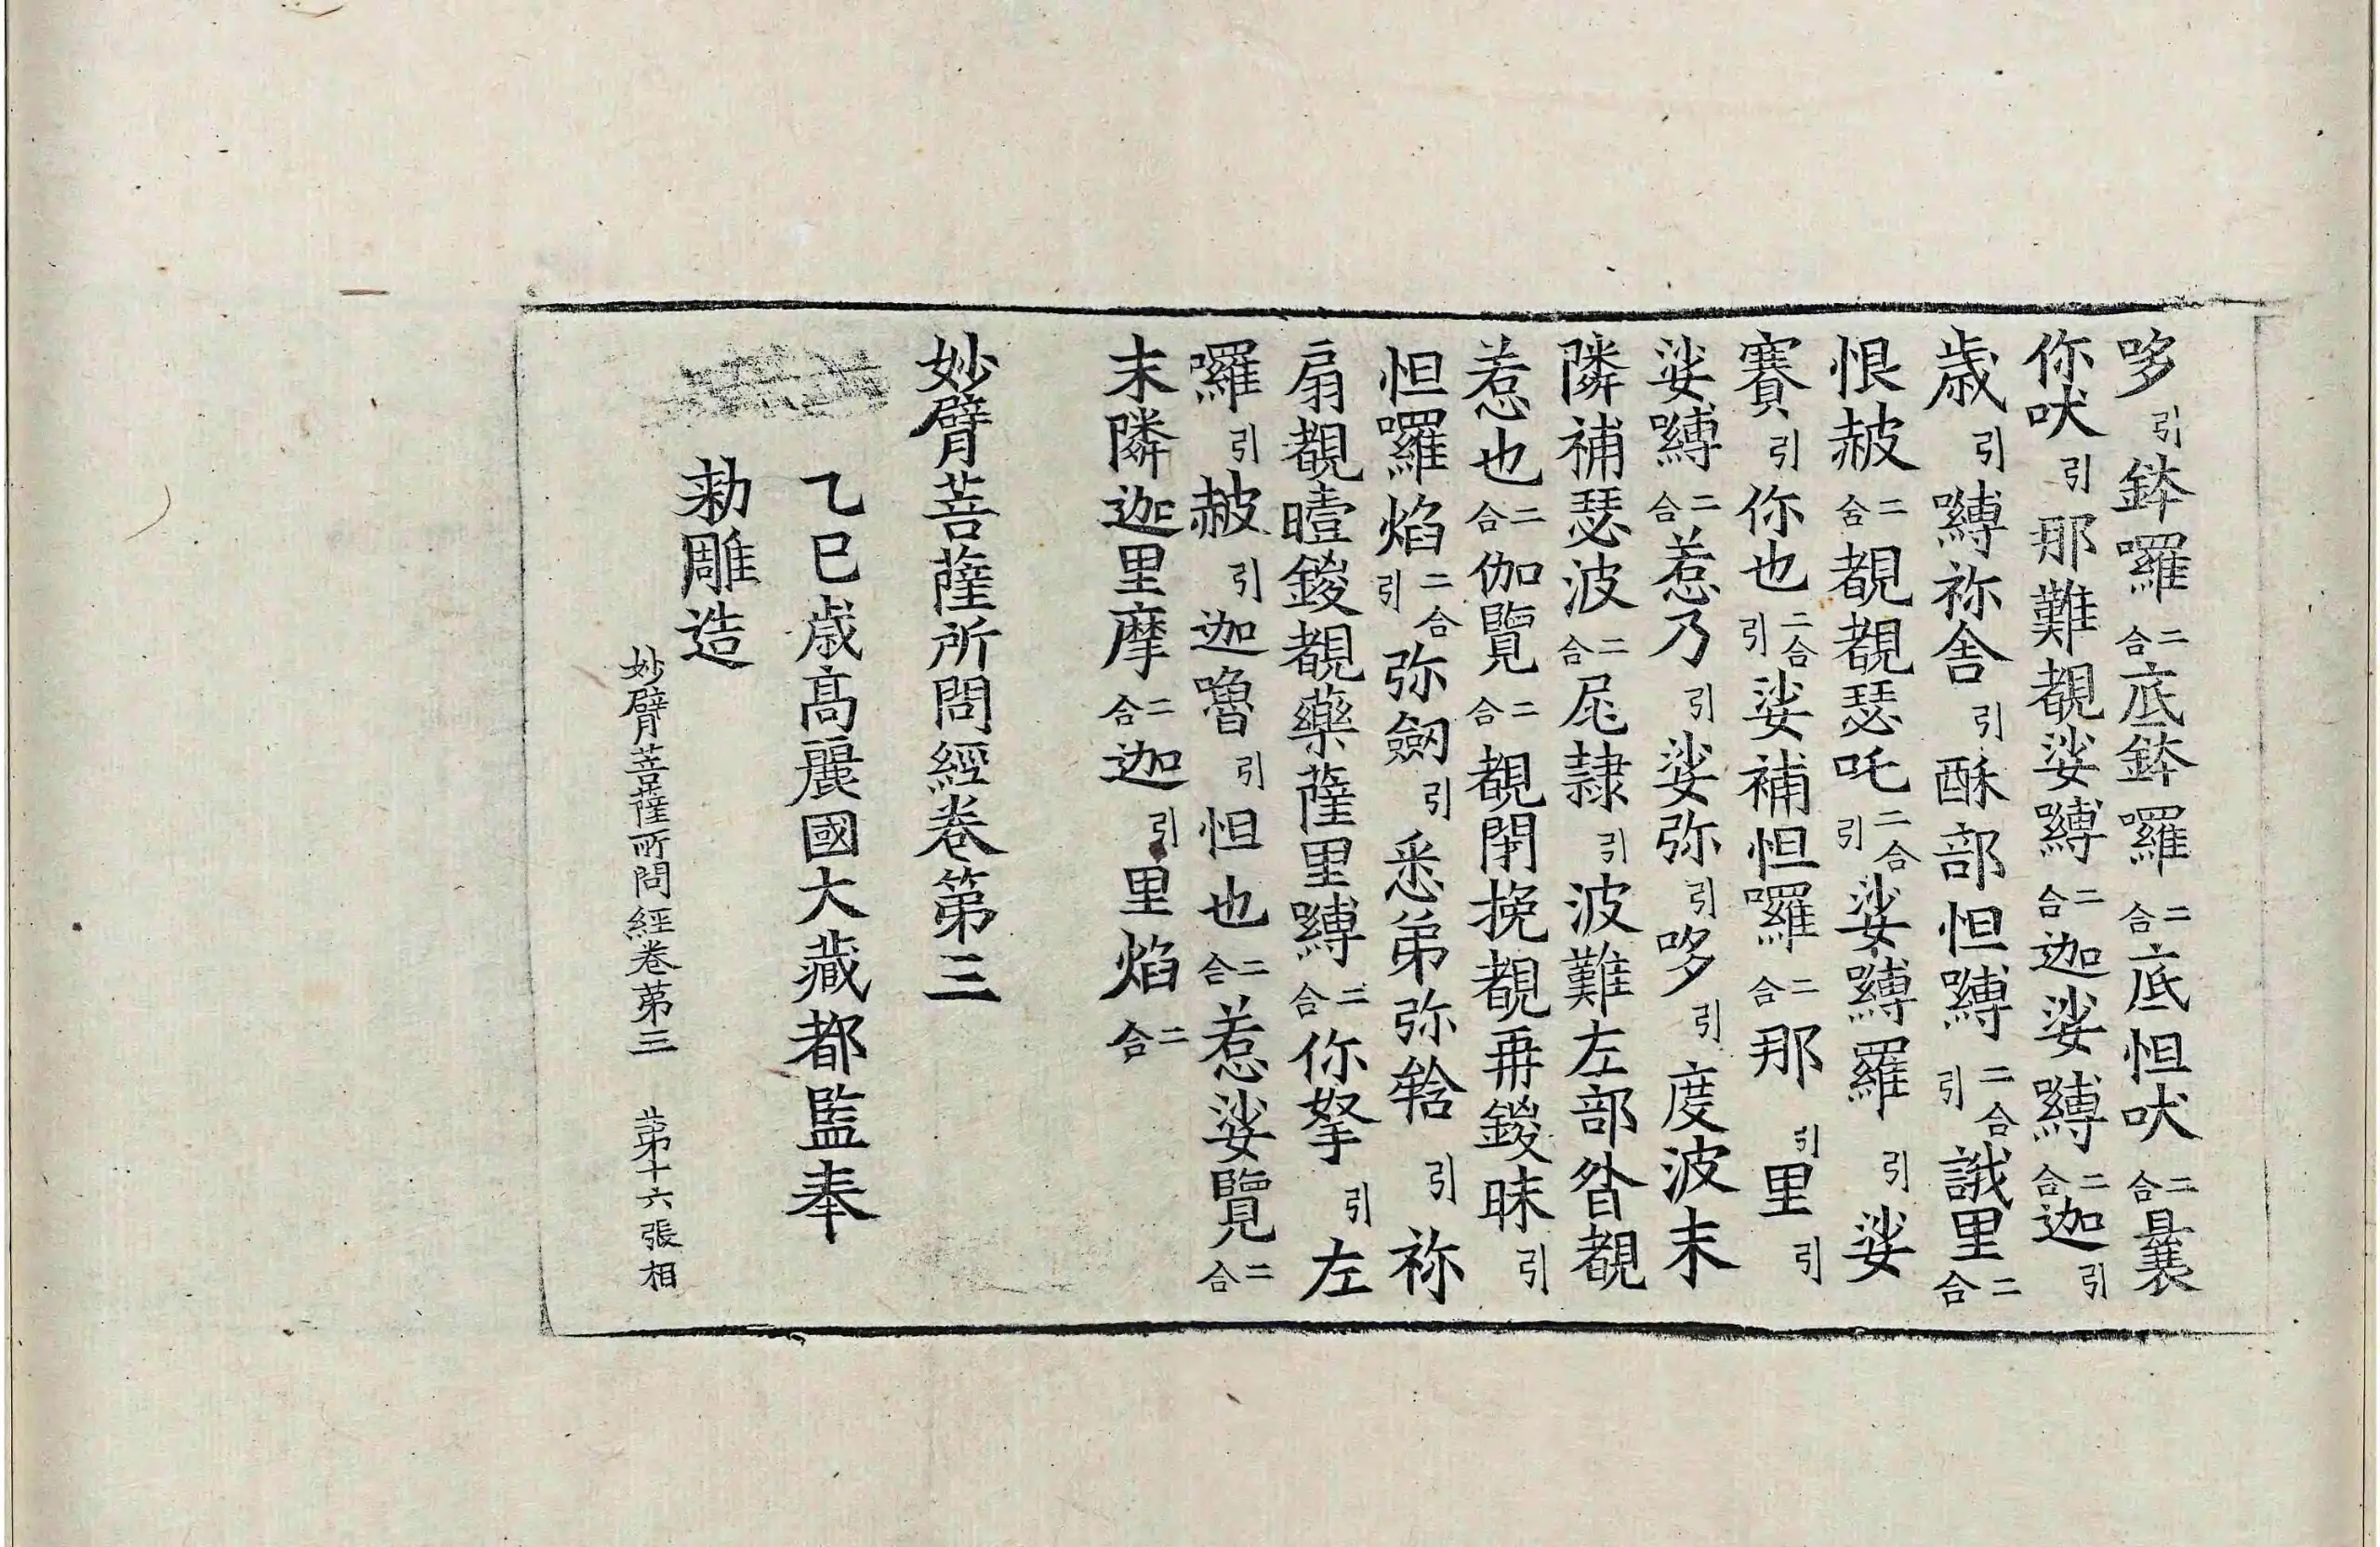 哆引鉢囉二合底鉢囉二合底怛吠二合曩
你吠引那難覩娑嚩二合迦娑嚩二合迦引
歳引嚩祢舎引酥部怛嚩二合引誐里二合
恨赧二合覩覩瑟吒二合引娑嚩羅引娑
賽引你也二合引娑補怛囉二合那引里引
娑嚩二合惹乃引娑弥引哆引度波末
隣補瑟波二合尾隷引波難左部呰覩
惹也二合伽覽二合覩閉挽覩再鑁昧引
怛囉焰二合引弥劒引悉弟弥鞥引祢
扇覩曀鑁覩藥薩里嚩二合你拏引左
囉引赧引迦嚕引怛也二合惹娑覽二合
末隣迦里摩二合迦引里焰二合
妙臂菩薩所問經卷第三
乙巳歳髙麗國大藏都監奉
勅雕造
妙臂菩薩所問經卷第三 第十六張 相